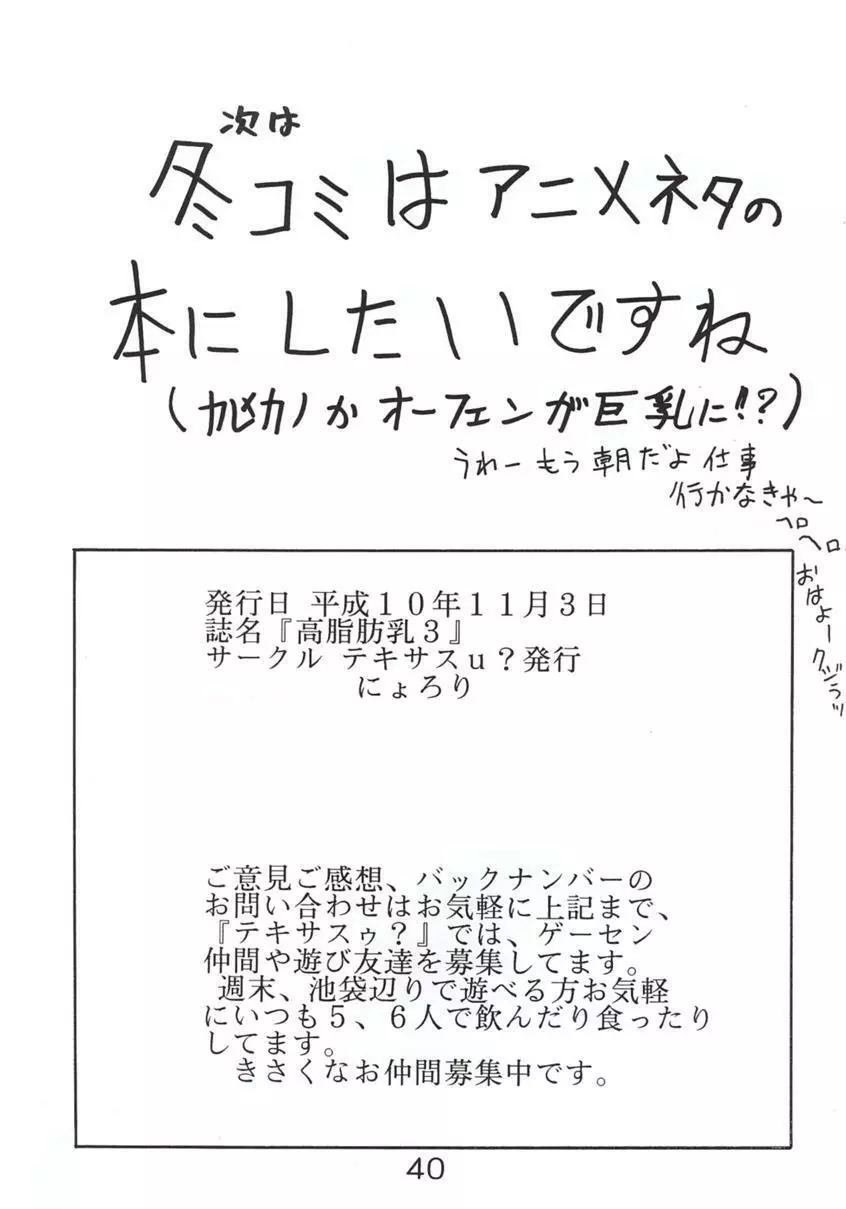 次は
冬コミはアニメネタの
本にしたいですね
か オーフェンが巨乳に!!?)
うわー もう朝だよ 仕事
行かなきゃ～
ヘロ
ヘロ
おはよー
発行日 平成１０年１１月３日
誌名『高脂肪乳３』
サークル テキサスｕ？発行
にょろり
ご意見ご感想、バックナンバーの
お問い合わせはお気軽に上記まで、
『テキサスゥ？』では、ゲーセン
仲間や遊び友達を募集してます。
週末、池袋辺りで遊べる方お気軽
にいつも５、６人で飲んだり食ったり
してます。
きさくなお仲間募集中です。
40